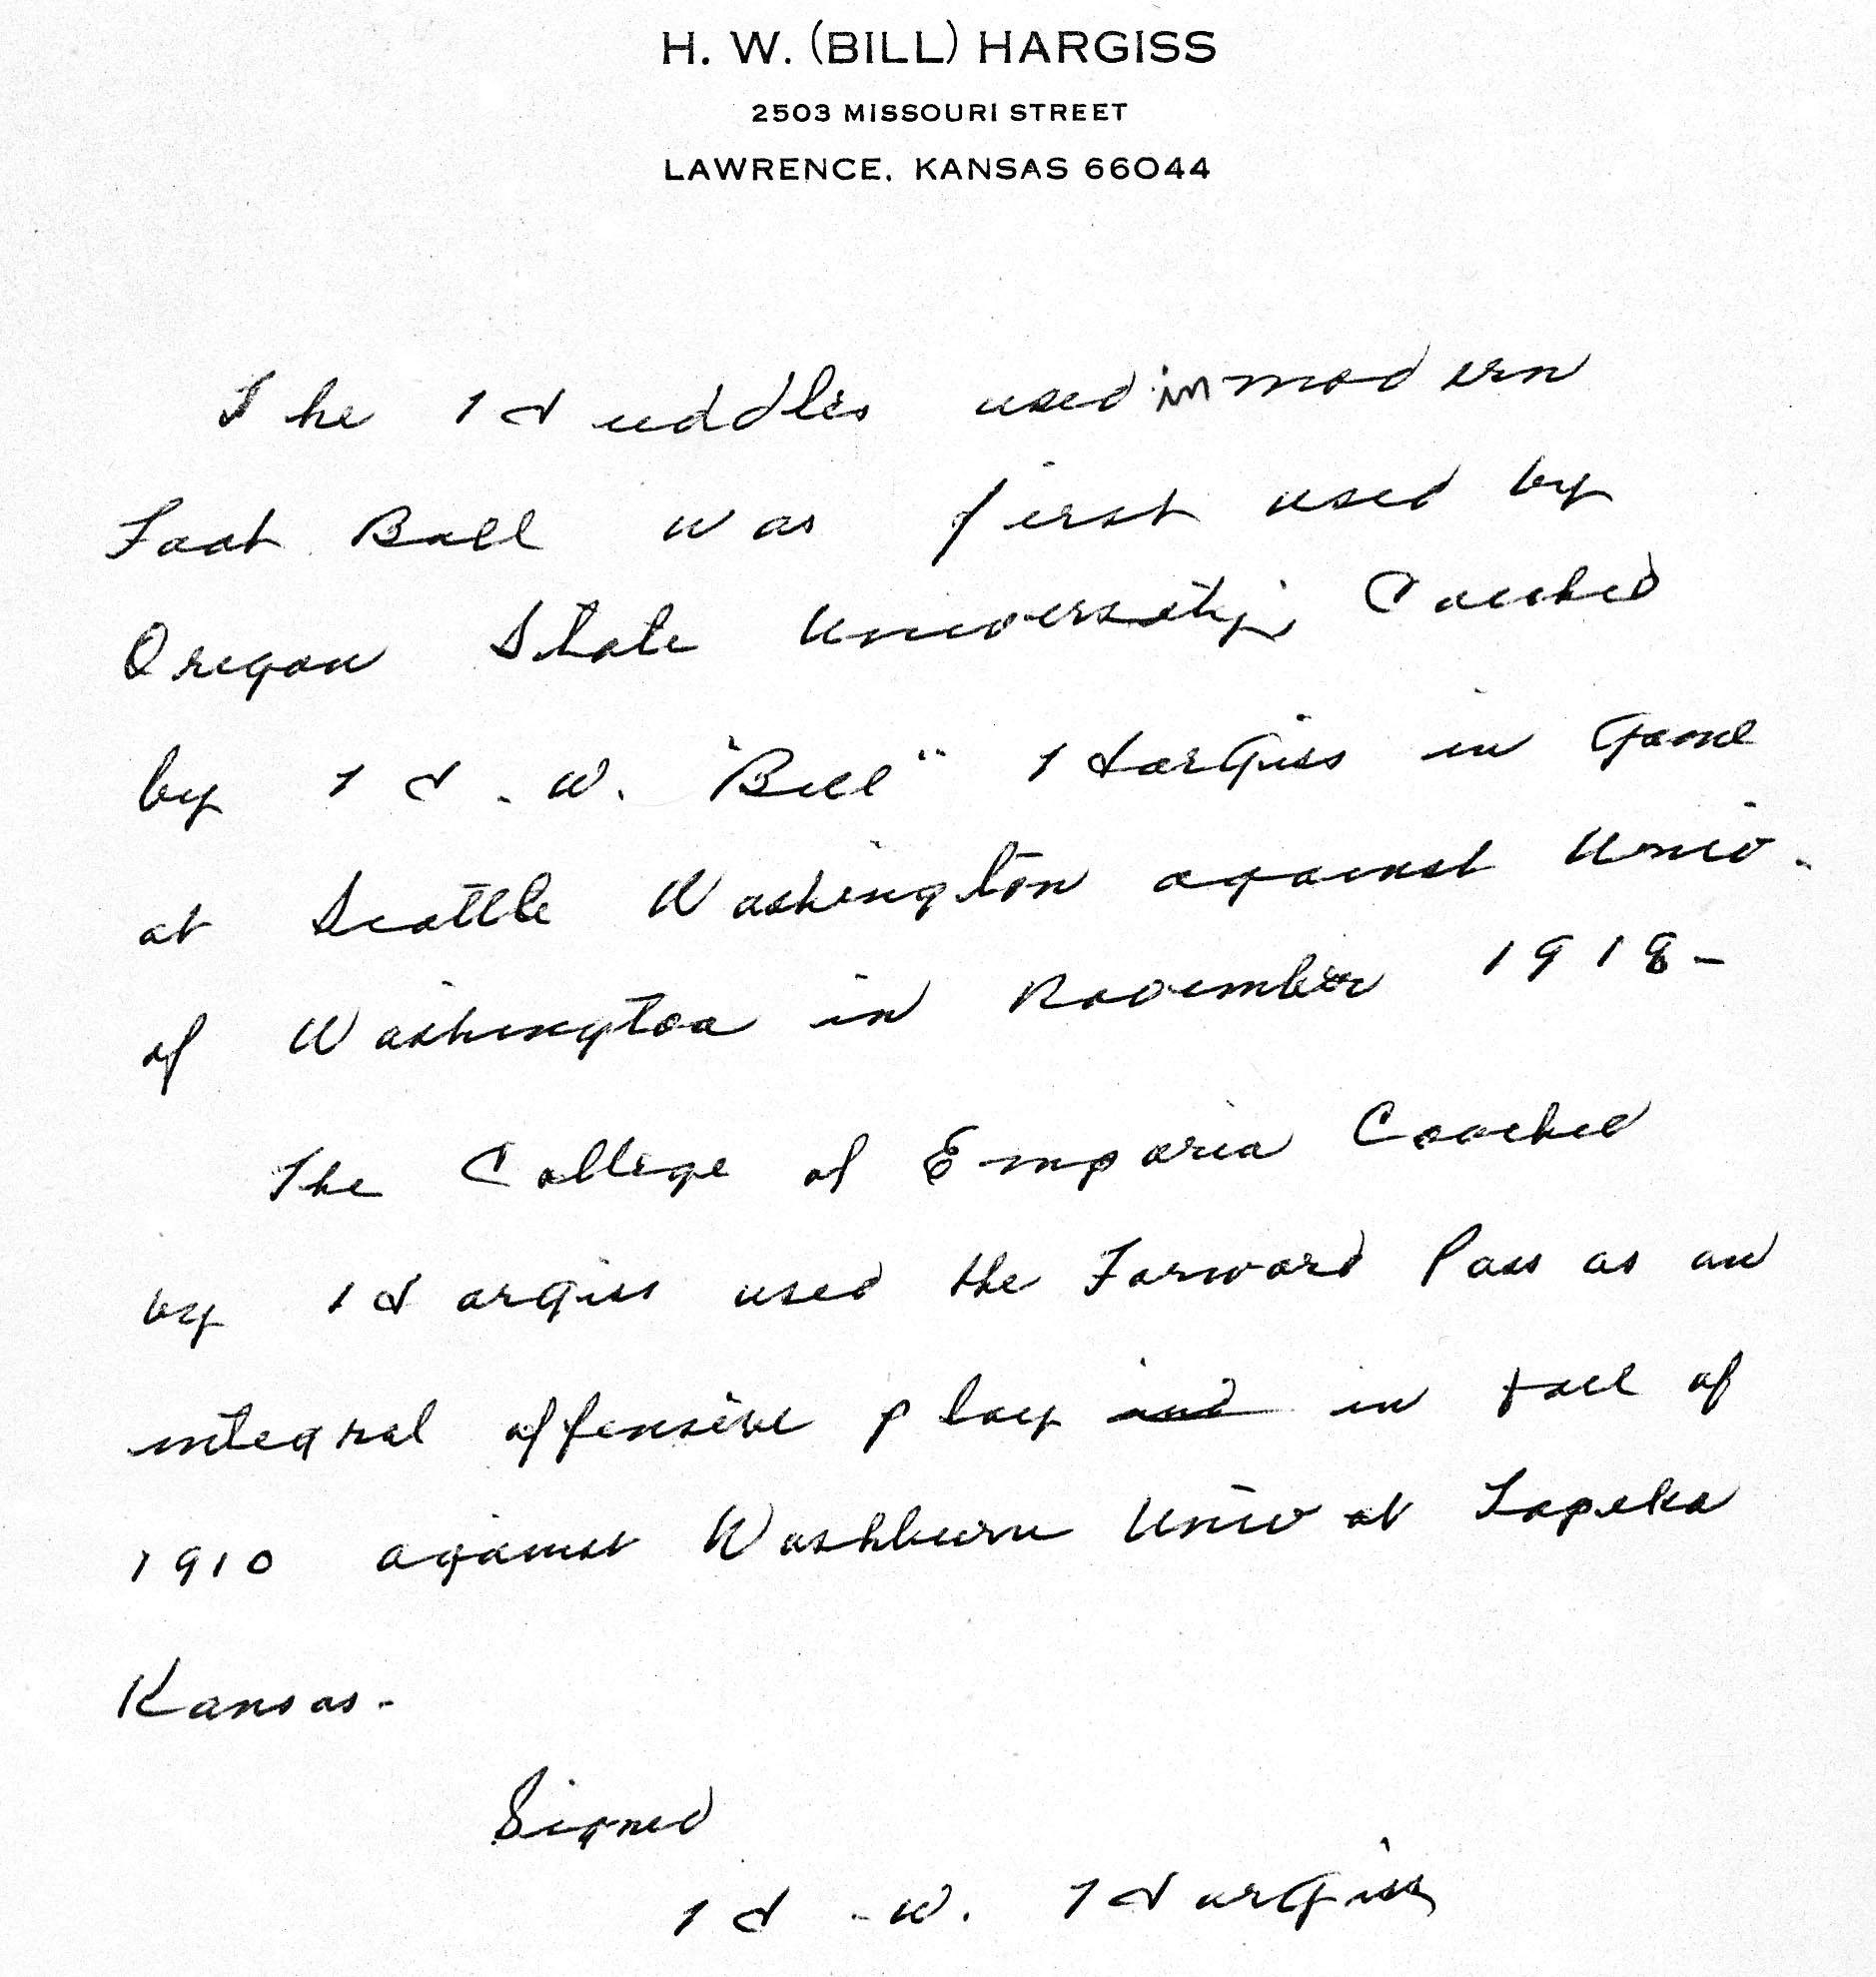 H. W. (BILL) HARGISS
2503 MISSOURI STREET
LAWRENCE, KANSAS 66044
The Huddles used in modern
Foot Ball was first used by
Oregon State University, Coached
by H. W. "Bill" Hargiss in Game
at Seattle Washington against Univ.
of Washington in November 1918-
The College of Emporia Coached
by Hargiss used the Forward Pass as an
integral offensive play and in fall of
1910 against Washburn Univ at Topeka
Kansas-
Signed
H-W. Hargiss